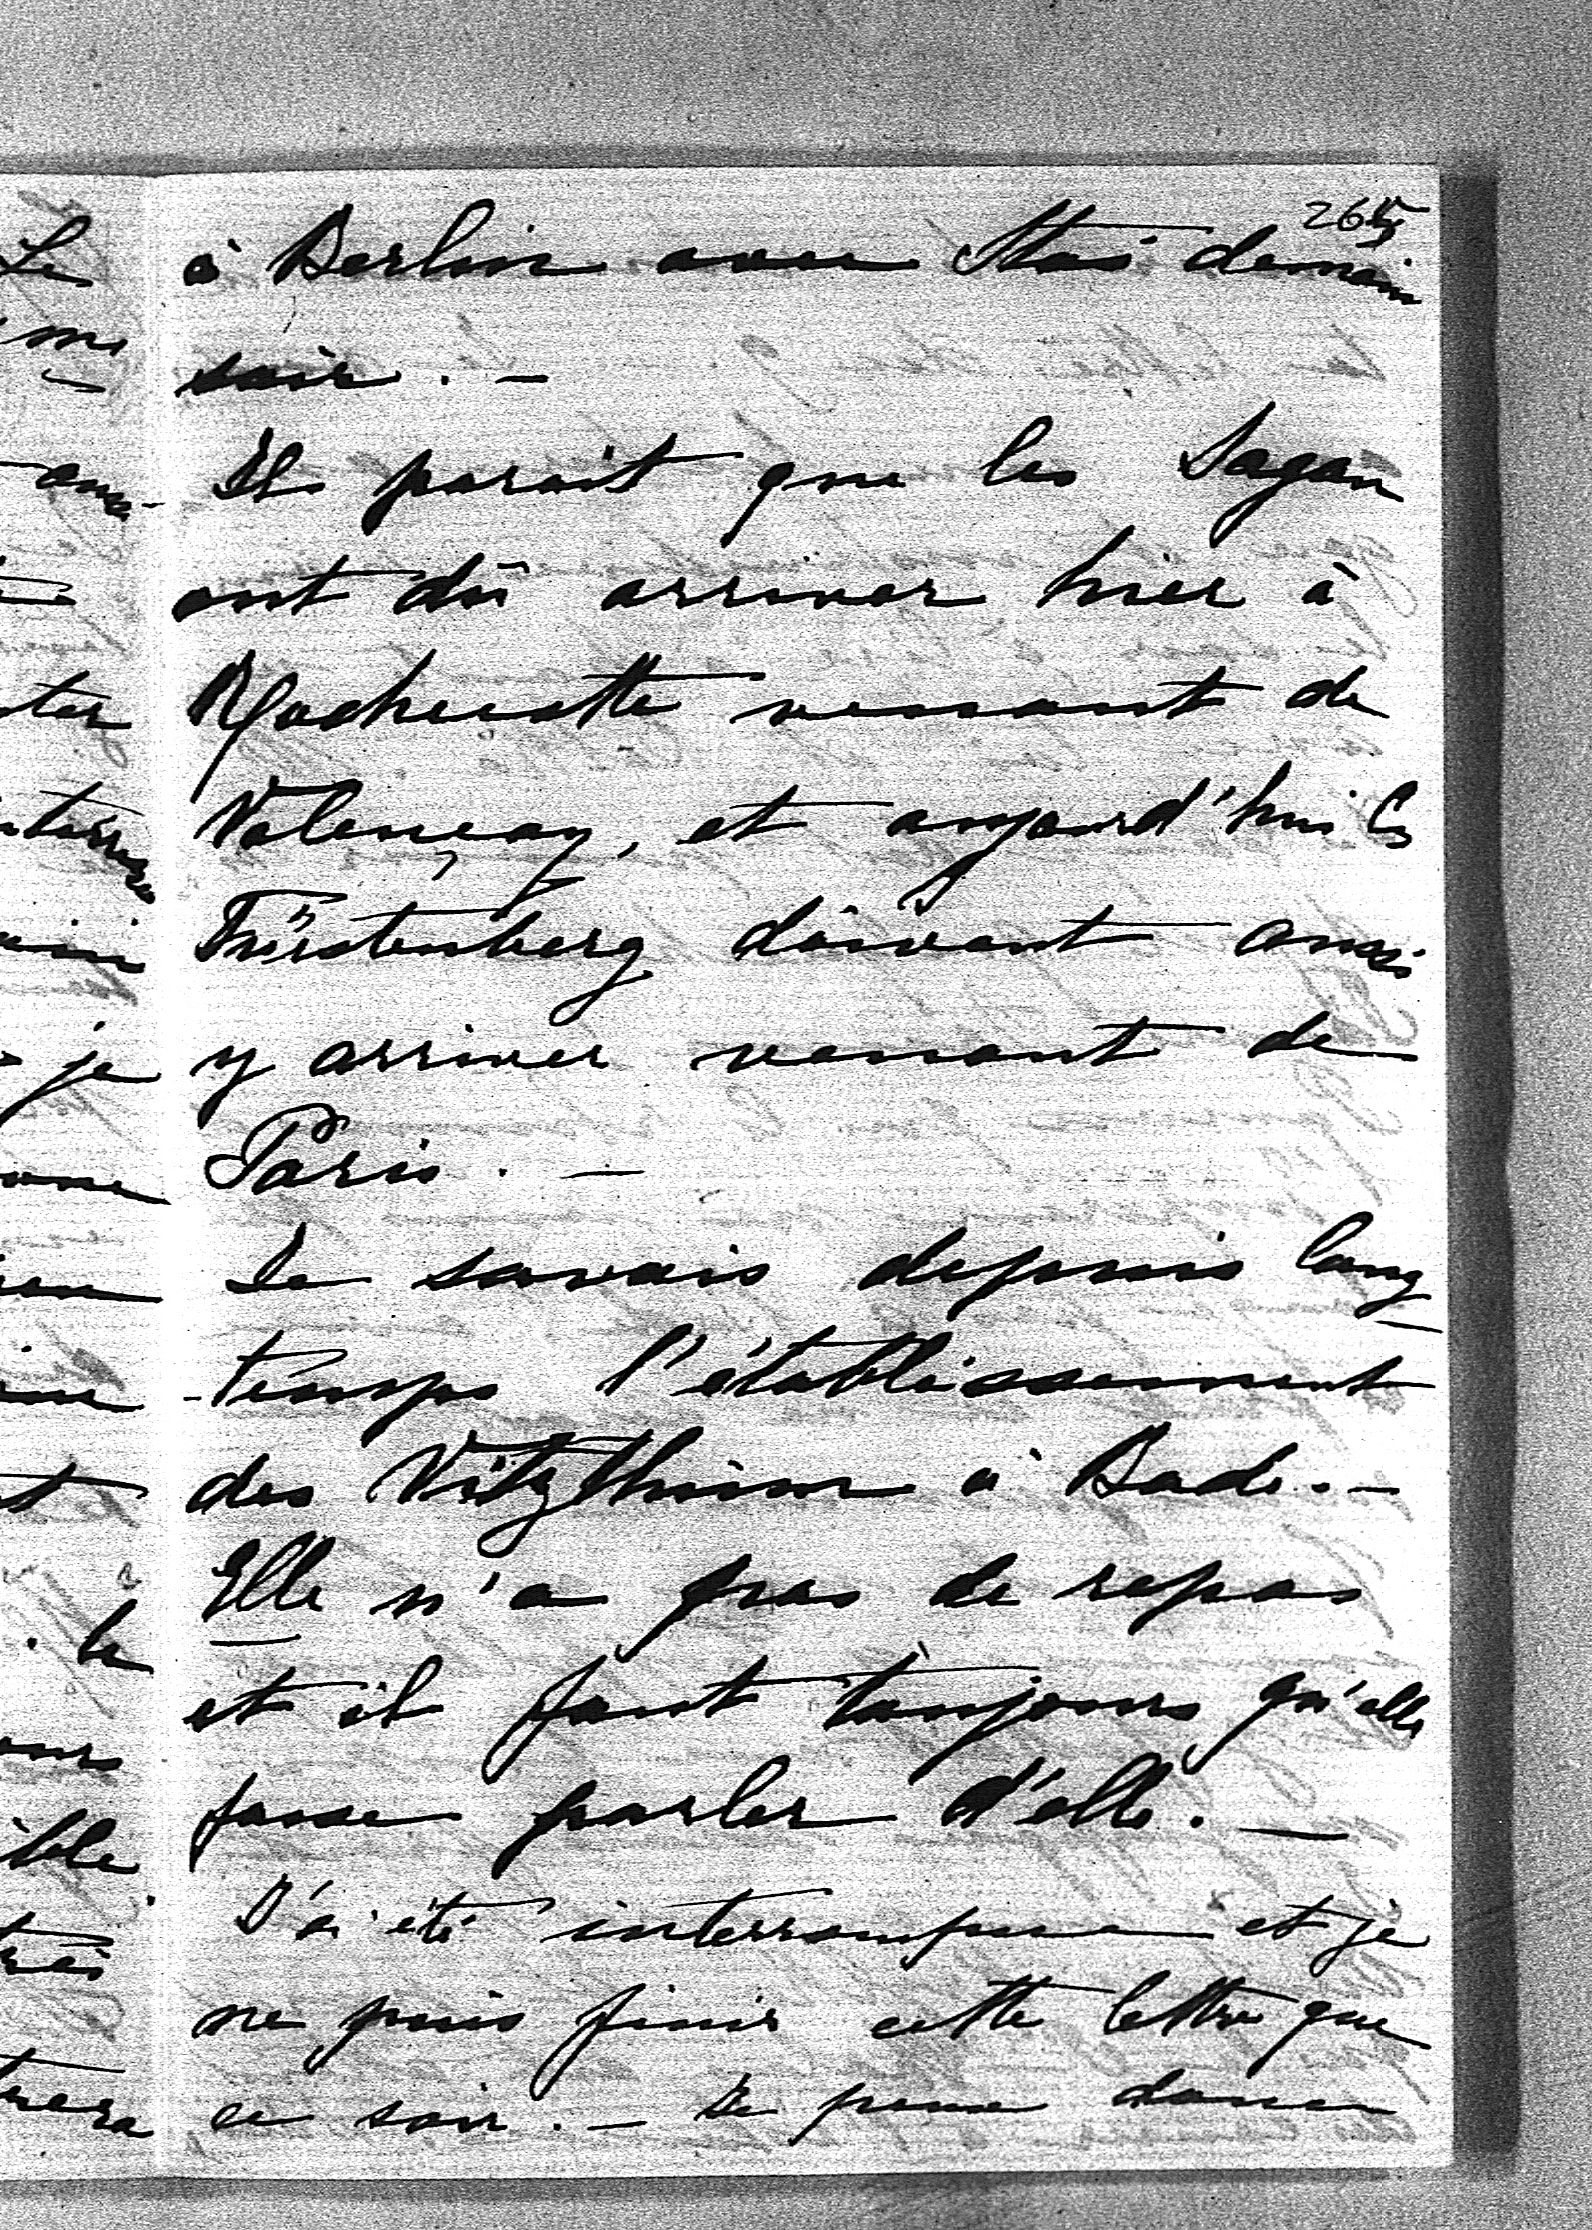 265
à Berlin avec Stas demain
soir. —
Il parait que les Sagan
ont dû arriver hier à
Rochecotte venant de
Valençay, et aujourd'hui les
Fürstenberg doivent aussi
y arriver venant de
Paris. —
Je savais depuis long
-temps l'établissement
des Vitzthum à Bade. —
Elle n'a pas de repos
et il faut toujours qu'elle
fasse parler d'elle. —
J'ai été interrompue et je
ne puis finir cette lettre que
ce soir. — Je peux donc